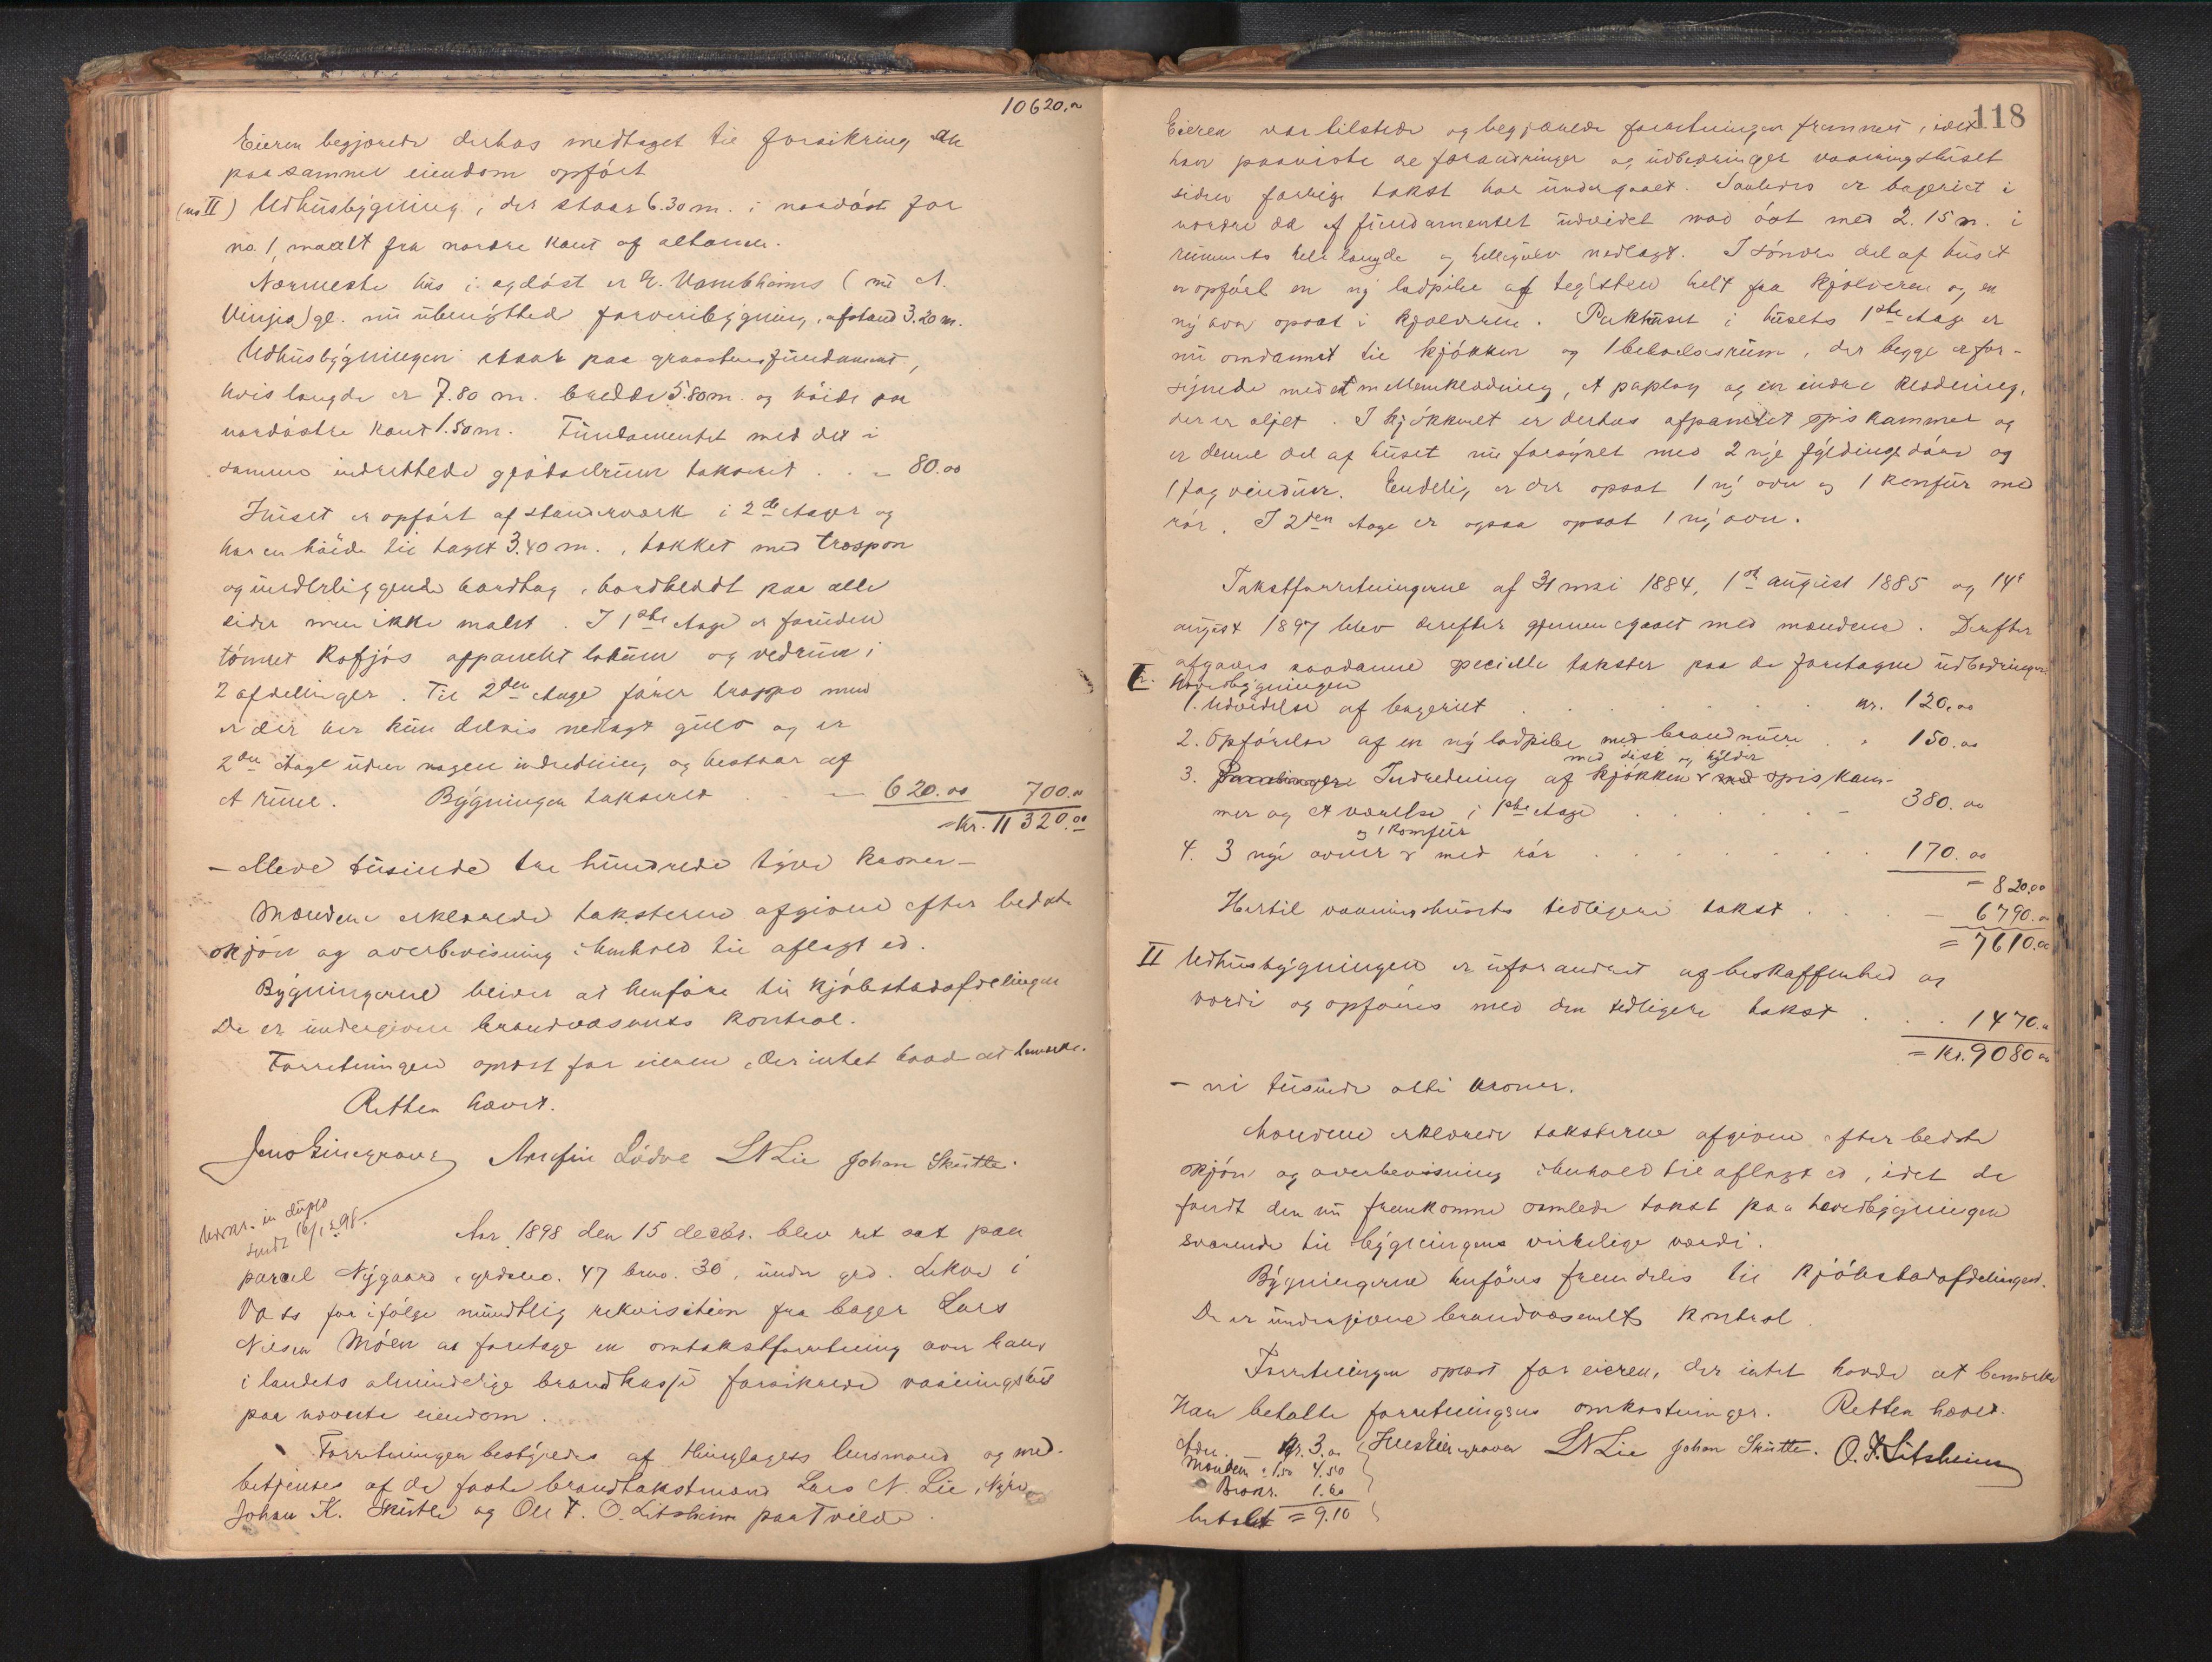 10620.00
Eieren begjærede derhos medtaget til forsikring en
paa samme eiendom opført
(no II) Udhusbygning, der staar 6.30 m. i nordøst for
no. 1, maalt fra nordre kant af altanen.
Nærmeste hus i sydøst er (nu A.
Vinjes) gl. nu ubenyttede farveribygning, afstand 3.20 m.
Udhusbygningen staar paa graastensfundament,
hvis længde er 7.80 m. bredde 5.80 m. og høide paa
nordøstre kant 1.50 m. Fundamentet med det i
samme indrettede gjødselrum takseret . . - 80.00
Huset er opført af stænderværk i 2de etager og
har en høide til taget 3.40 m., tækket med træspon
og underliggende bordtag, bordklædt paa alle
sider men ikke malet. I 1ste etage er foruden
tømret kofjøs afpanelet lokum og vedrum i
2 afdelinger. Til 2den etage fører trappe men
er der her kun delvis nedlagt gulv og er
2den etage uden nogen indredning og bestaar af
et rum. Bygningen takseret . . - 620.00 700.00
= Kr. 11320.00
- Elleve tusinde tre hundrede tyve kroner -
Mændene erklærede taksterne afgivne efter bedste
skjøn og overbevisning i henhold til aflagt ed.
Bygningerne bliver at henføre til kjøbstadafdelingen
De er undergivne brandvæsenets kontrol.
Forretningen oplæst for eieren, der intet havde at bemærke.
Retten hævet.
Jens Giergraver Arnfin Lødve L N Lie Johan Skutle.
Udskr. in duplo
sendt 16/12 98.
Aar 1898 den 15 decbr. blev ret sat paa
parcel Nygaard, grdsno. 47 brno. 30, under grd. Lekve i
Voss for ifølge mundtlig rekvisition fra bager Lars
Nilsen Møen at foretage en omtakstforretning over hans
i landets almindelige brandkasse forsikrede vaaningshus
paa nævnte eiendom.
Forretningen bestyredes af thinglagets lensmand og med-
betjentes af de faste brandtakstmænd Lars N. Lie,
Johan K. Skutle og Ole T. O. Litsheim paa Tvilde.
118
Eieren var tilstede og begjærede forretningen fremmet, idet
han paaviste de forandringer og udbedringer vaaningshuset
siden forrige takst har undergaaet. Saaledes er bageriet i
nordre del af fundamentet udvidet mod øst med 2.15 m. i
rummets hele længde og hellegulv nedlagt. I søndre del af huset
er opført en ny ladpibe af teglsten helt fra kjælderen og en
ny ovn opsat i kjælderen. Pakhuset i husets 1ste etage er
nu omdannet til kjøkken og 1 beboelsesrum, der begge er for-
synede med et mellemklædning, et paplag og en indre klædning,
der er oljet. I kjøkkenet er derhos afpanelet spiskammer og
er denne del af huset nu forsynet med 2 nye fyldingsdøre og
1 fag vinduer. Endelig er der opsat 1 ny ovn og 1 komfur med
rør. I 2den etage er ogsaa opsat 1 ny ovn.
Takstforretningerne af 31 mai 1884, 1st august 1885 og 14de
august 1897 blev derefter gjennemgaaet med mændene. Derefter
afgaves saadanne specielle takster paa de foretagne udbedringer
I. Hovedbygningen
1. Udvidelse af bageriet . . . . . . kr. 120.00
2. Opførelse af en ny ladpibe med brandmure . . " 150.00
med disk og hylder
3. Indredning af kjøkken med spiskam-
mer og et værelse i 1ste etage . . . . . - 380.00
og 1 komfur
4. 3 nye ovner med rør . . . . . . . 170.00
= 820.00
Hertil vaaningshusets tidligere takst . . . - 6790.00
= 7610.00
II Udhusbygningen er uforandret af beskaffenhed og
værdi og opføres med den tidligere takst . . . 1470.00
= Kr. 9080.00
- ni tusinde otti kroner.
Mændene erklærede taksterne afgivne efter bedste
skjøn og overbevisning i henhold til aflagt ed, idet de
fandt den nu fremkomne samlede takst paa hovedbygningen
svarende til bygningens virkelige værdi.
Bygningerne henføres fremdeles til kjøbstadafdelingen.
De er undergivne brandvæsenets kontrol.
Forretningen oplæst for eieren, der intet havde at bemærke
Han betalte forretningens omkostninger. Retten hævet.
Adm. Kr. 3.00 Jens Giergraver L N Lie Johan Skutle. O. T. Litsheim
Mændene à 1.50 4.50
1.60
betalt = 9.10